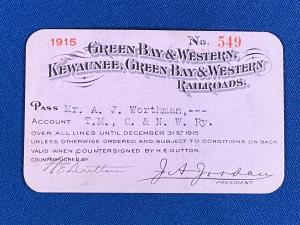 1915 No. 549
GREEN BAY & WESTERN,
KEWAUNEE, GREEN BAY & WESTERN
RAILROADS.
PASS Mr. A. J. Worthman,---
ACCOUNT T.M., C. & N. W. Ry.
OVER ALL LINES UNTIL DECEMBER 31ST 1915
UNLESS OTHERWISE ORDERED AND SUBJECT TO CONDITIONS ON BACK
VALID WHEN COUNTERSIGNED BY H.E. DUTTON.
COUNTERSIGNED BY
H E Dutton J A Jordan
PRESIDENT.